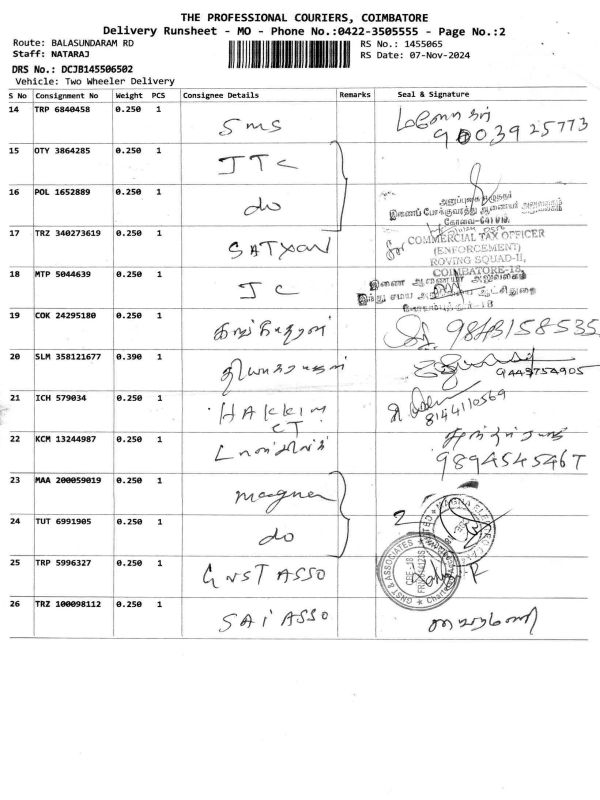 THE PROFESSIONAL COURIERS, COIMBATORE
Delivery Runsheet - MO - Phone No.:0422-3505555 - Page No.:2
Route: BALASUNDARAM RD
RS No.: 1455065
Staff: NATARAJ
RS Date: 07-Nov-2024
DRS No.: DCJB145506502
Vehicle: Two Wheeler Delivery
S No Consignment No Weight PCS Consignee Details Remarks Seal & Signature
14 TRP 6840458 0.250 1 SMS
15 OTY 3864285 0.250 1 JTC
16 POL 1652889 0.250 1 do
அனுப்புகை எழுத்தர்
இணைப் போக்குவரத்து ஆணையர் அலுவலகம்
17 TRZ 340273619 0.250 1
COMMERCIAL TAX OFFICER
(ENFORCEMENT)
ROVING SQUAD-II,
COIMBATORE-18
18 MTP 5044639 0.250 1 JC
இணை ஆணையர் அலுவலகம்
இந்து சமய ஆட்சிதுறை
19 COK 24295180 0.250 1
20 SLM 358121677 0.390 1 9443754905
21 ICH 579034 0.250 1 HAKKIM 8144110569
CT
22 KCM 13244987 0.250 1
23 MAA 200059019 0.250 1 magna
24 TUT 6991905 0.250 1 do 2
25 TRP 5996327 0.250 1 GNST ASSO
GNSY & ASSOCIATES
26 TRZ 100098112 0.250 1 SAI ASSO